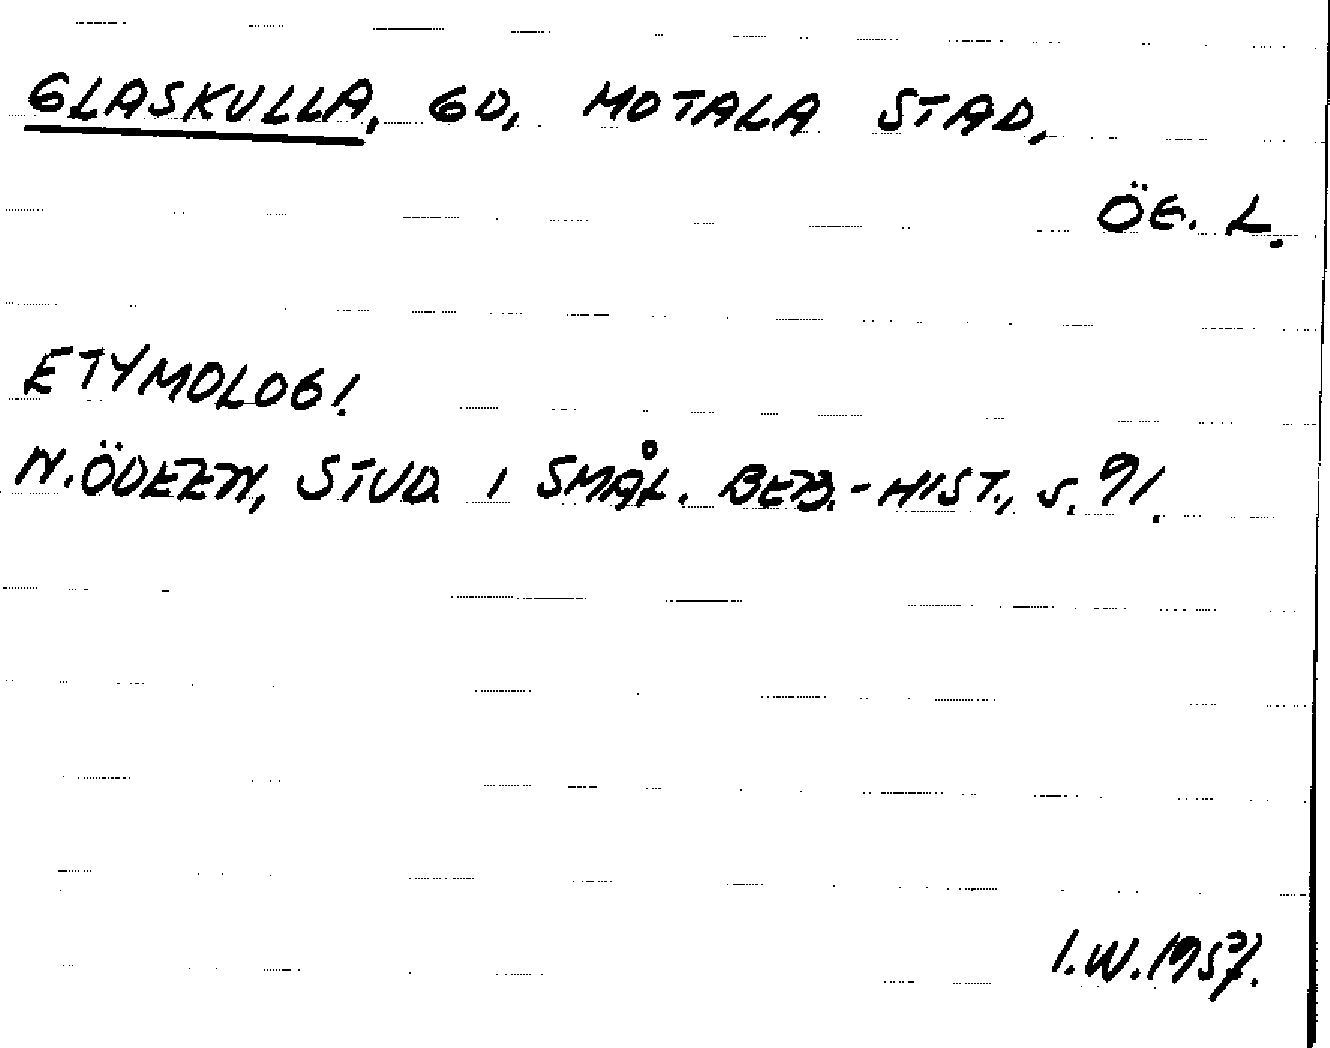 GLASKULLA, GD, MOTALA STAD,
ÖG. L.
ETYMOLOGI.
N. ÖDEEN, STUD. I SMÅL. BEB.-HIST., S. 91.
I.W. 1957.